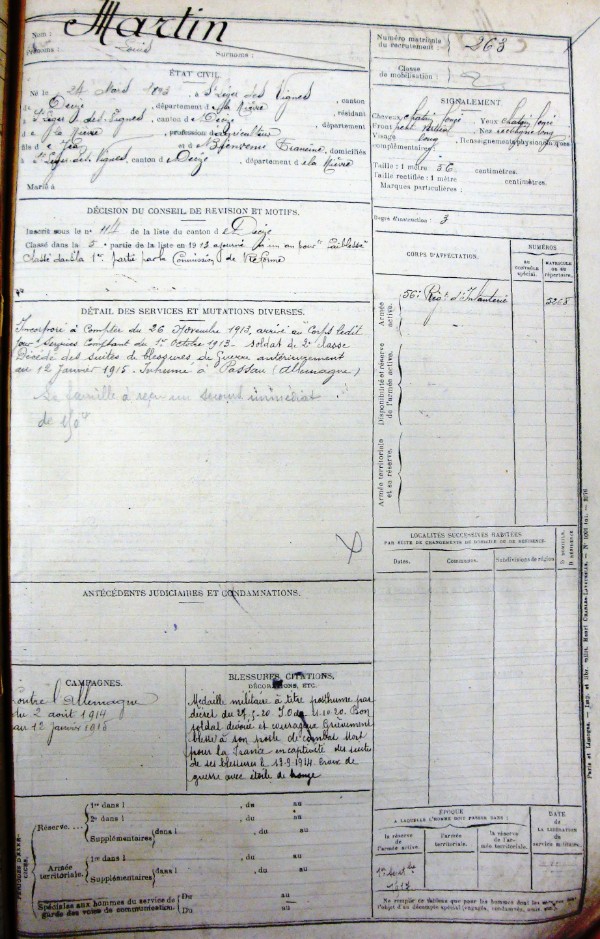 Nom : Martin
Prénoms : Louis Surnoms :
Numéro matricule
du recrutement : 263
Classe
de mobilisation :
ÉTAT CIVIL.
Né le 24 Mars 1893, à St Léger des Vignes, canton
de Decize, département d la Nièvre, résidant
à St Léger-des-Vignes, canton d Decize, département
d la Nièvre, profession d agriculteur
fils d et d Bienvenu Francine, domiciliés
à St Léger-des-Vignes, canton d Decize, département d la Nièvre
Marié à
SIGNALEMENT.
Cheveux Yeux
Front Nez
Visage long
Renseignements physionomiques
complémentaires :
Taille : 1 mètre 56 centimètres.
Taille rectifiée : 1 mètre centimètres.
Marques particulières :
Degré d'instruction : 3
DÉCISION DU CONSEIL DE RÉVISION ET MOTIFS.
Inscrit sous le n° 114 de la liste du canton d Decize
Classé dans la 5e partie de la liste en 1913 ajourné un an pour faiblesse
Classé dans la 1re partie par la Commission de Réforme
CORPS D'AFFECTATION.
NUMÉROS
AU
CONTRÔLE
spécial.
MATRICULE
OU AU
répertoire.
Armée
active.
56e Régt d'Infanterie
Disponibilité et réserve
de l'armée active.
Armée territoriale
et sa réserve.
DÉTAIL DES SERVICES ET MUTATIONS DIVERSES.
Incorporé à compter du 26 Novembre 1913, arrivé au Corps ledit
jour. Services Comptant du 1er Octobre 1913. soldat de 2e classe
Décédé des suites de blessures de Guerre antérieurement
au 12 janvier 1915. Inhumé à Passau (Allemagne)
Sa famille a reçu un secours immédiat
de 150f
LOCALITÉS SUCCESSIVES HABITÉES
PAR SUITE DE CHANGEMENTS DE DOMICILE OU DE RÉSIDENCE.
Dates. Communes. Subdivisions de région. D DOMICILE. R RÉSIDENCE
ANTÉCÉDENTS JUDICIAIRES ET CONDAMNATIONS.
CAMPAGNES.
Contre l'Allemagne
du 2 août 1914
au 12 Janvier 1915
BLESSURES, CITATIONS,
DÉCORATIONS, ETC.
Médaille militaire à titre posthume par
décret du J.O du 11.10.20. Bon
soldat dévoué et courageux. Grièvement
blessé à son poste de combat. Mort
pour la France en captivité des suites
de ses blessures le 18.9.1914. Croix de
guerre avec étoile de bronze
PÉRIODES D'EXERCICES.
Réserve....
1re dans l , du au
2e dans l , du au
Supplémentaires dans l , du au
Armée
territoriale.
1re dans l , du au
Supplémentaires dans l , du au
Spéciales aux hommes du service de
garde des voies de communication.
Du au
Du au
ÉPOQUE
À LAQUELLE L'HOMME DOIT PASSER DANS :
la réserve
de l'armée active.
l'armée
territoriale.
la réserve
de l'armée
territoriale.
DATE
DE
LA LIBÉRATION
DU
service militaire.
Ne remplir ce tableau que pour les hommes dont les
l'objet d'un décompte spécial (engagés, condamnés, omis, etc.).
Paris et Limoges. — Imp. et libr. milit. Henri Charles-Lavauzelle.